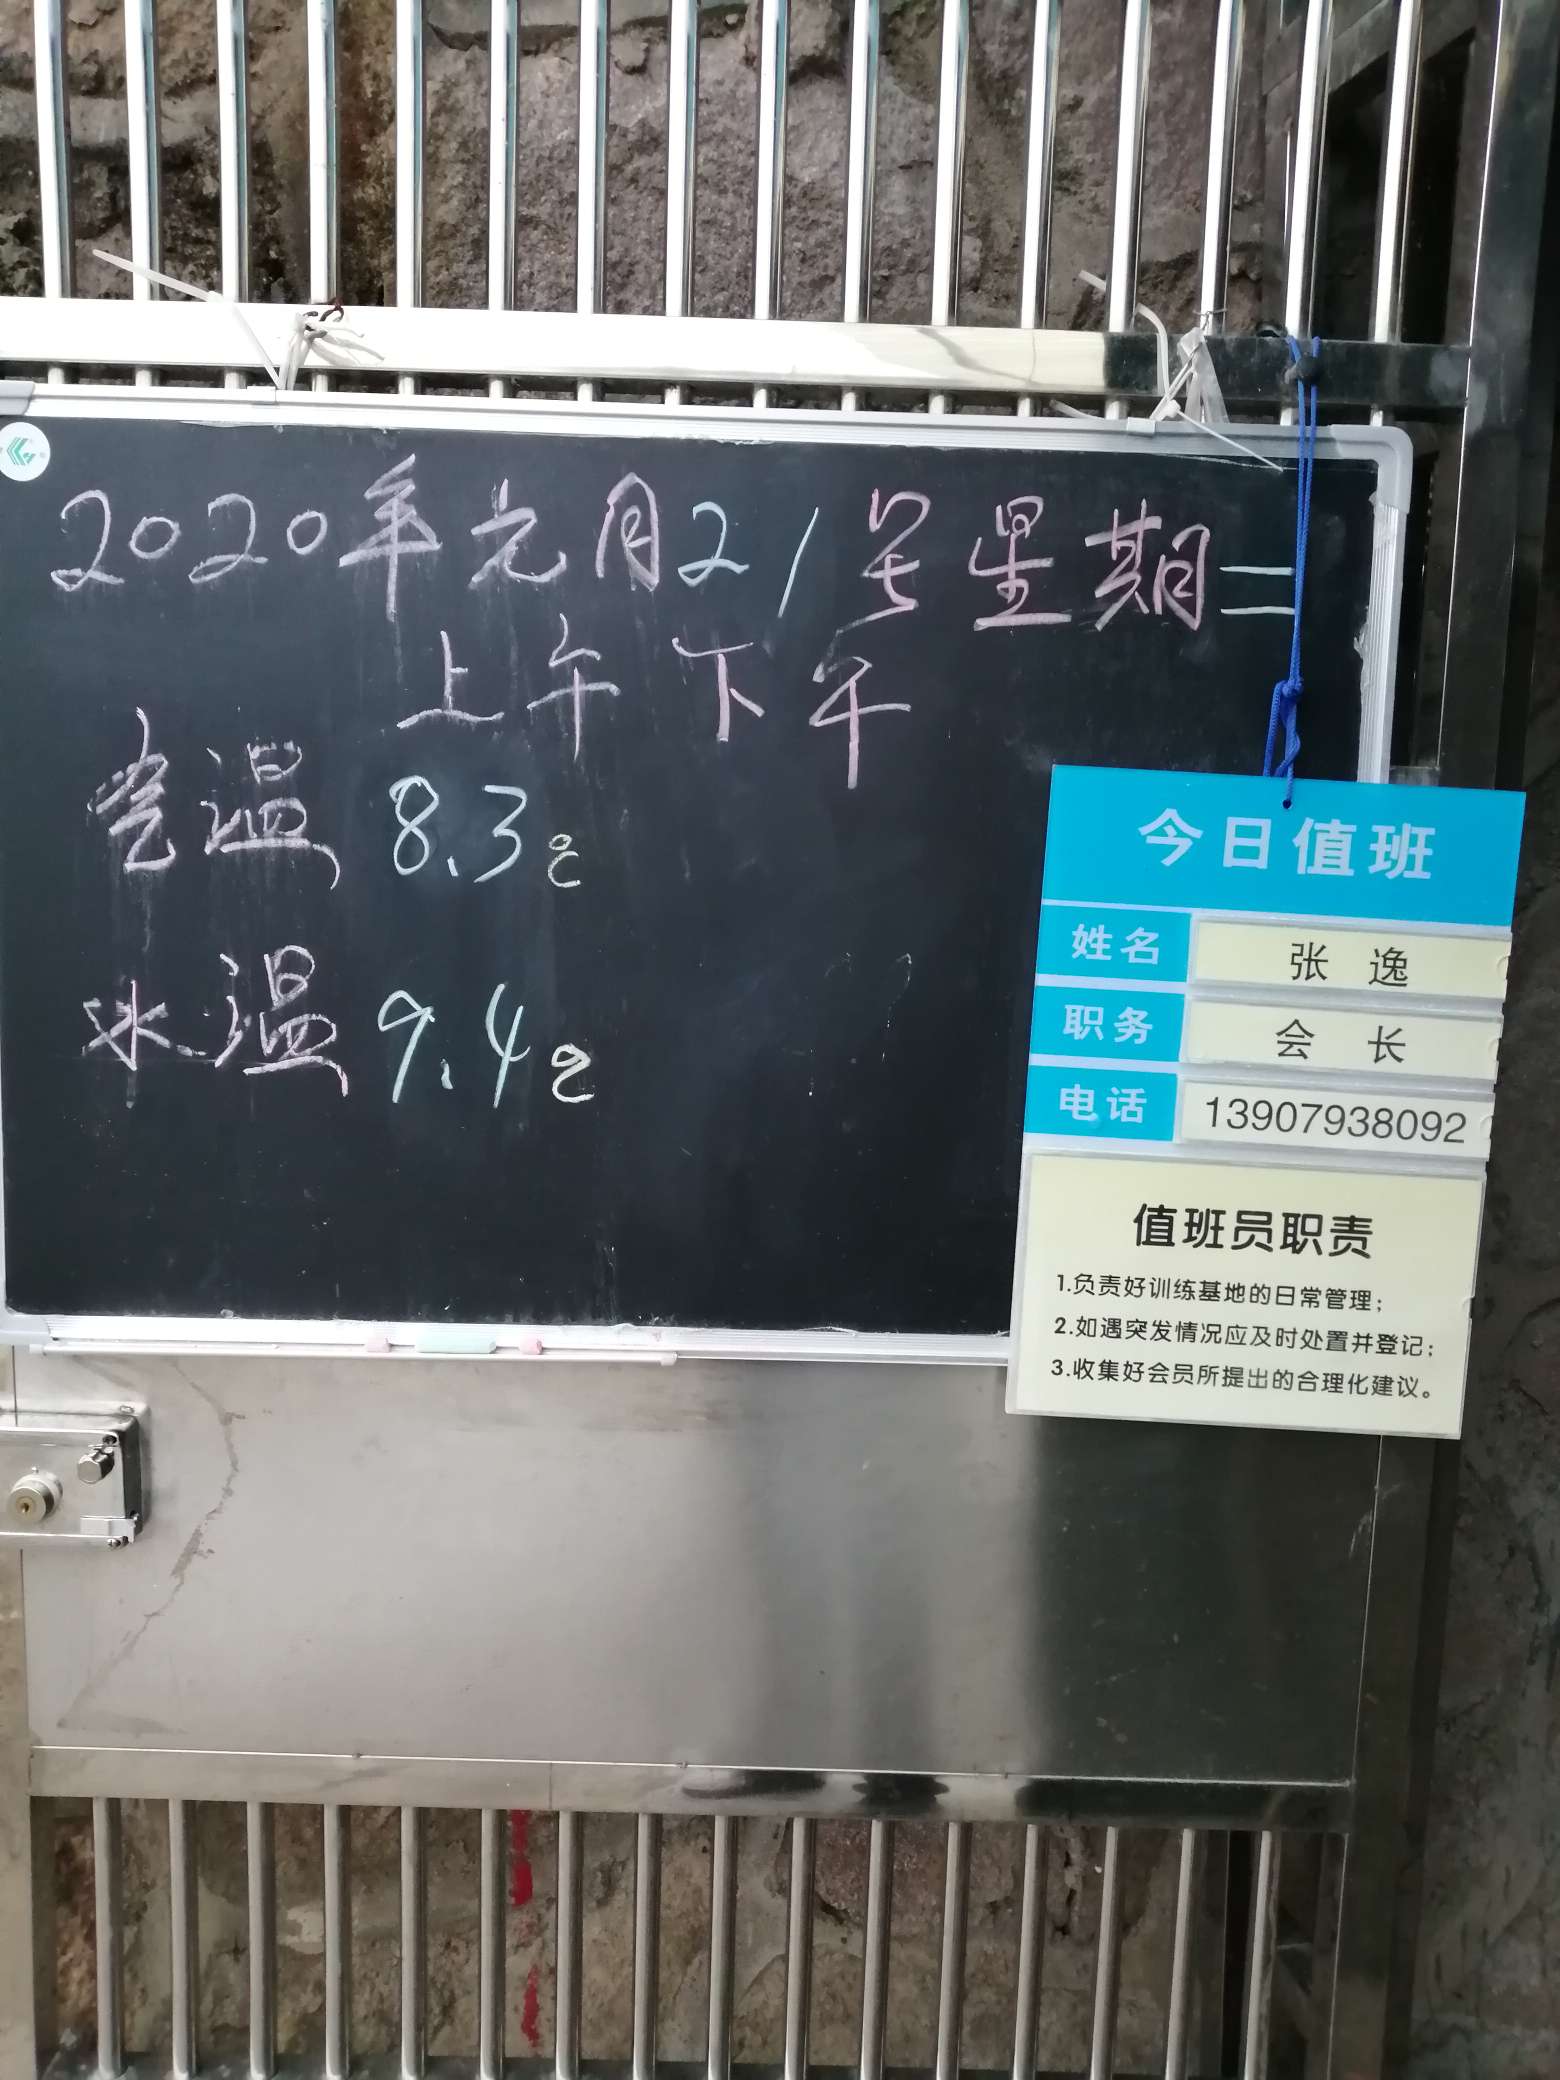 2020年元月21号星期二
上午 下午
气温 8.3℃
水温 9.4℃
今日值班
姓名 张 逸
职务 会 长
电话 13907938092
值班员职责
1.负责好训练基地的日常管理；
2.如遇突发情况应及时处置并登记；
3.收集好会员所提出的合理化建议。